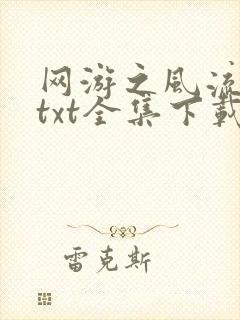 网游之风流
txt全集下载
雷克斯